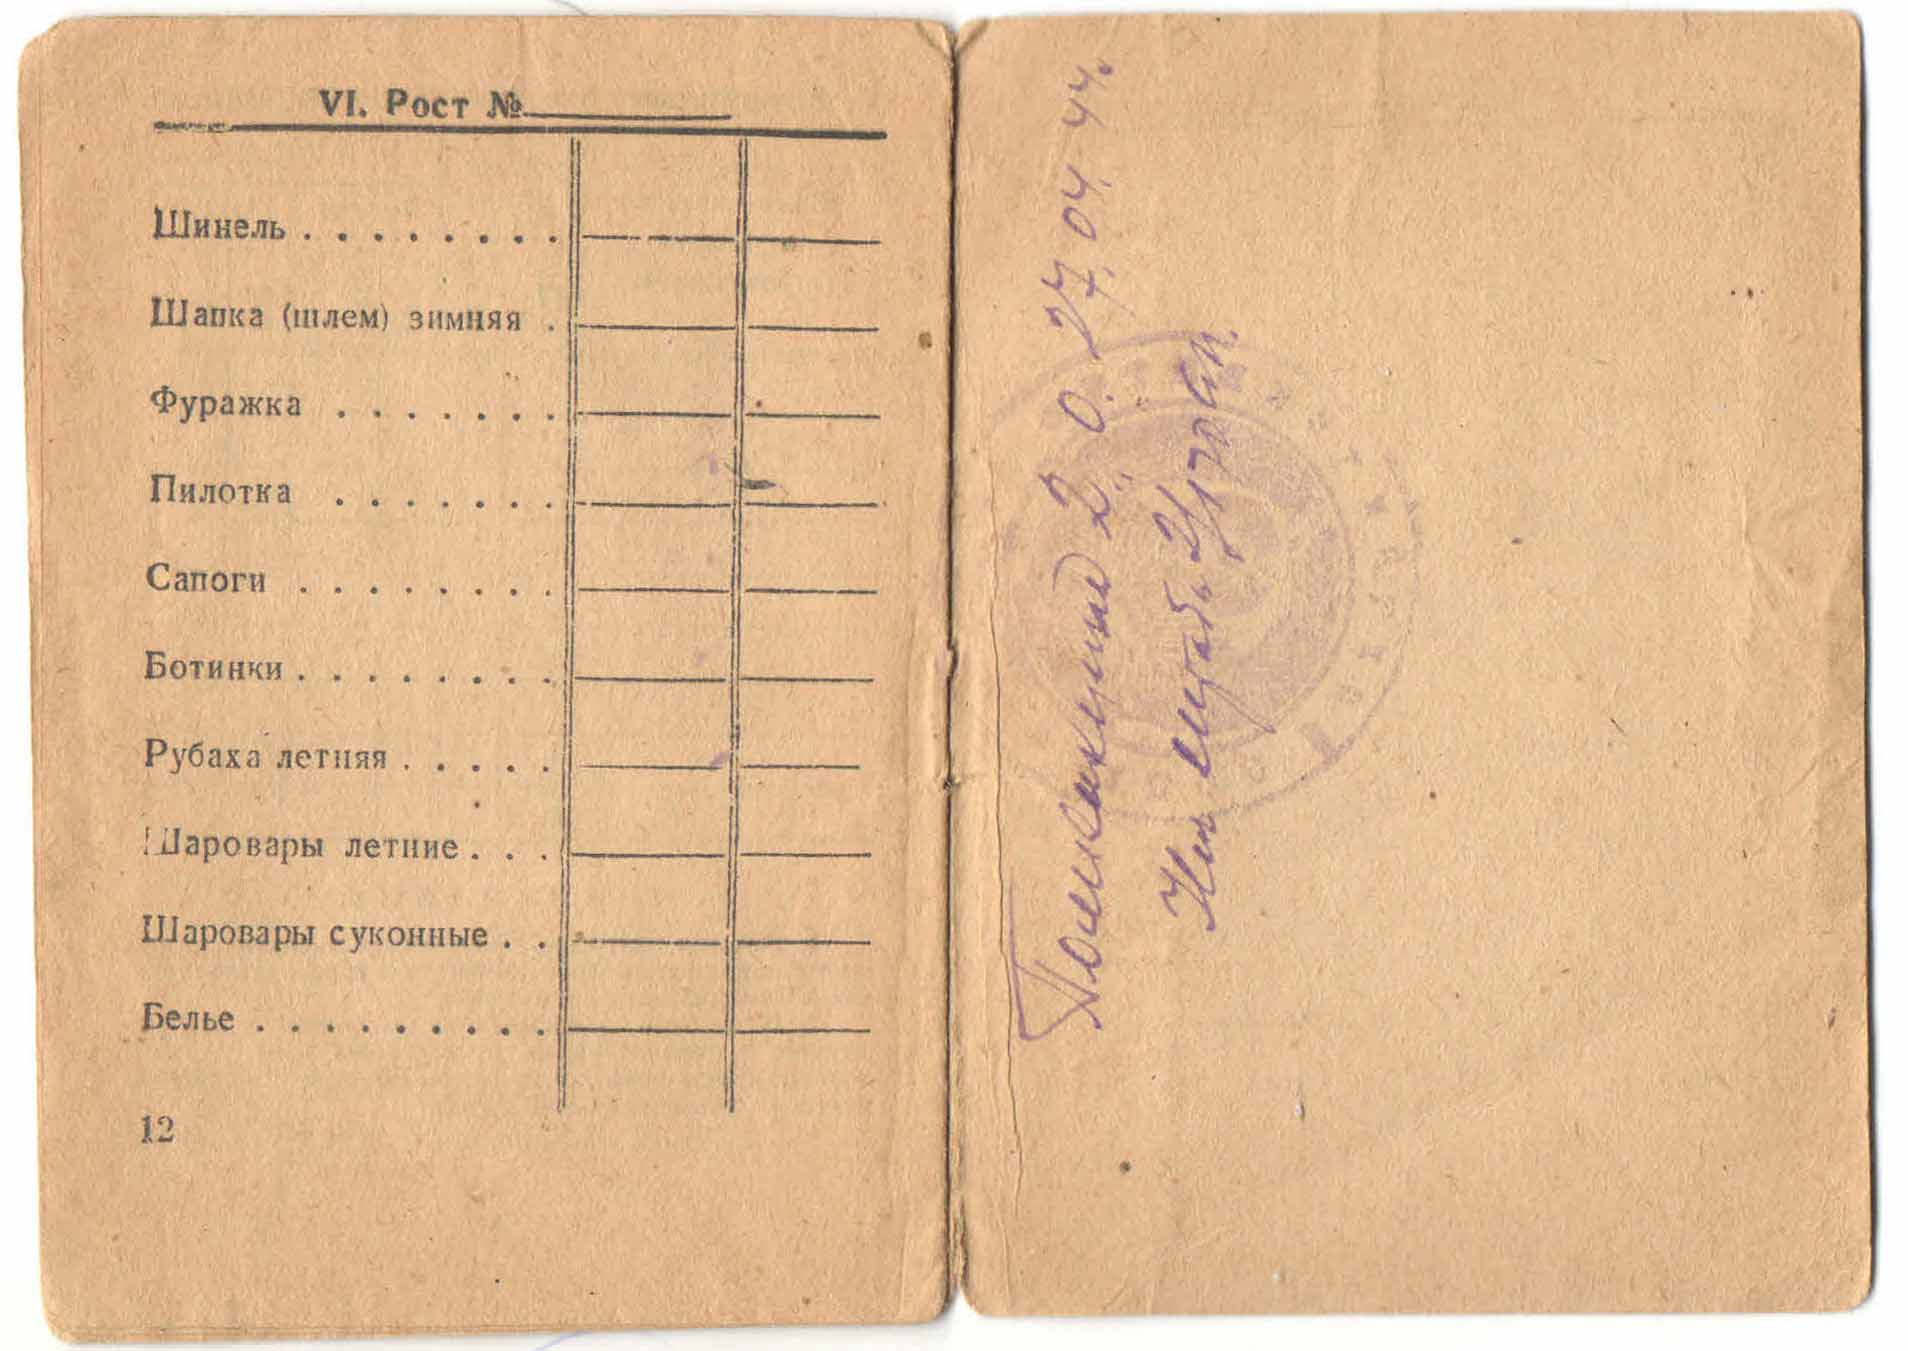 VI. Рост №
Шинель
Шапка (шлем) зимняя
Фуражка
Пилотка
Сапоги
Ботинки
Рубаха летняя
Шаровары летние
Шаровары суконные
Белье
12
27.04.44.